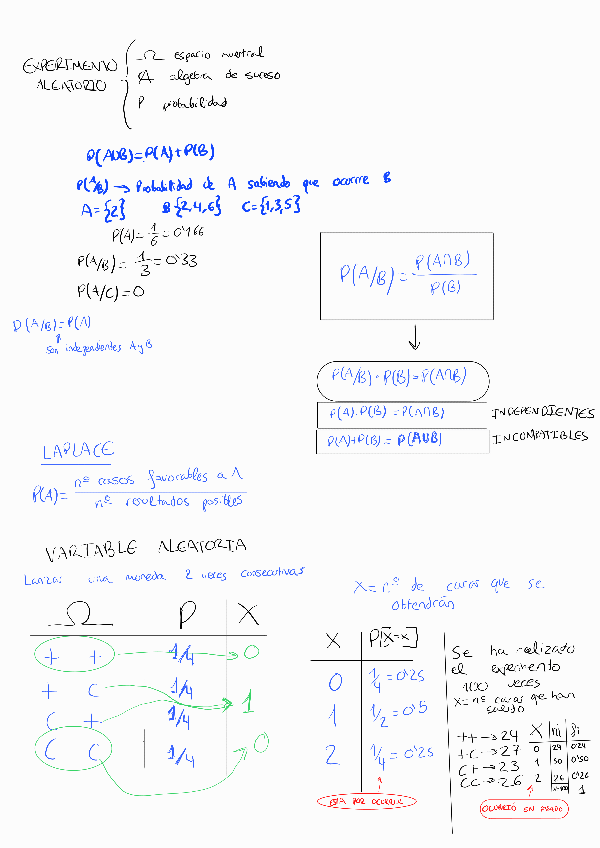 EXPERIMENTO ALEATORIO
Ω espacio muestral
A algebra de suceso
P probabilidad
P(AUB)=P(A)+P(B)
P(A/B) → Probabilidad de A sabiendo que ocurre B
A={2} B{2,4,6} C={1,3,5}
P(A)=1/6=0'166
P(A/B)=1/3=0'33
P(A/C)=0
P(A/B)=P(A)
son independientes A y B
P(A/B)=P(A∩B)/P(B)
P(A/B)·P(B)=P(A∩B)
P(A)·P(B)=P(A∩B) INDEPENDIENTES
P(A)+P(B)=P(AUB) INCOMPATIBLES
LAPLACE
P(A)=nº casos favorables a A / nº resultados posibles
VARIABLE ALEATORIA
Lanzar una moneda 2 veces consecutivas
Ω P X
+ + 1/4 0
+ C 1/4 1
C + 1/4
C C 1/4 0
X=nº de caras que se
obtendrán
X P[X=x]
0 1/4=0'25
1 1/2=0'5
2 1/4=0'25
ESTÁ POR OCURRIR
Se ha realizado
el experimento
100 veces
X=nº caras que han
salido
++→24
+C→27
C+→23
CC→26
X ni fi
0 24 0'24
1 50 0'50
2 26 0'26
1
OCURRIÓ EN PASADO